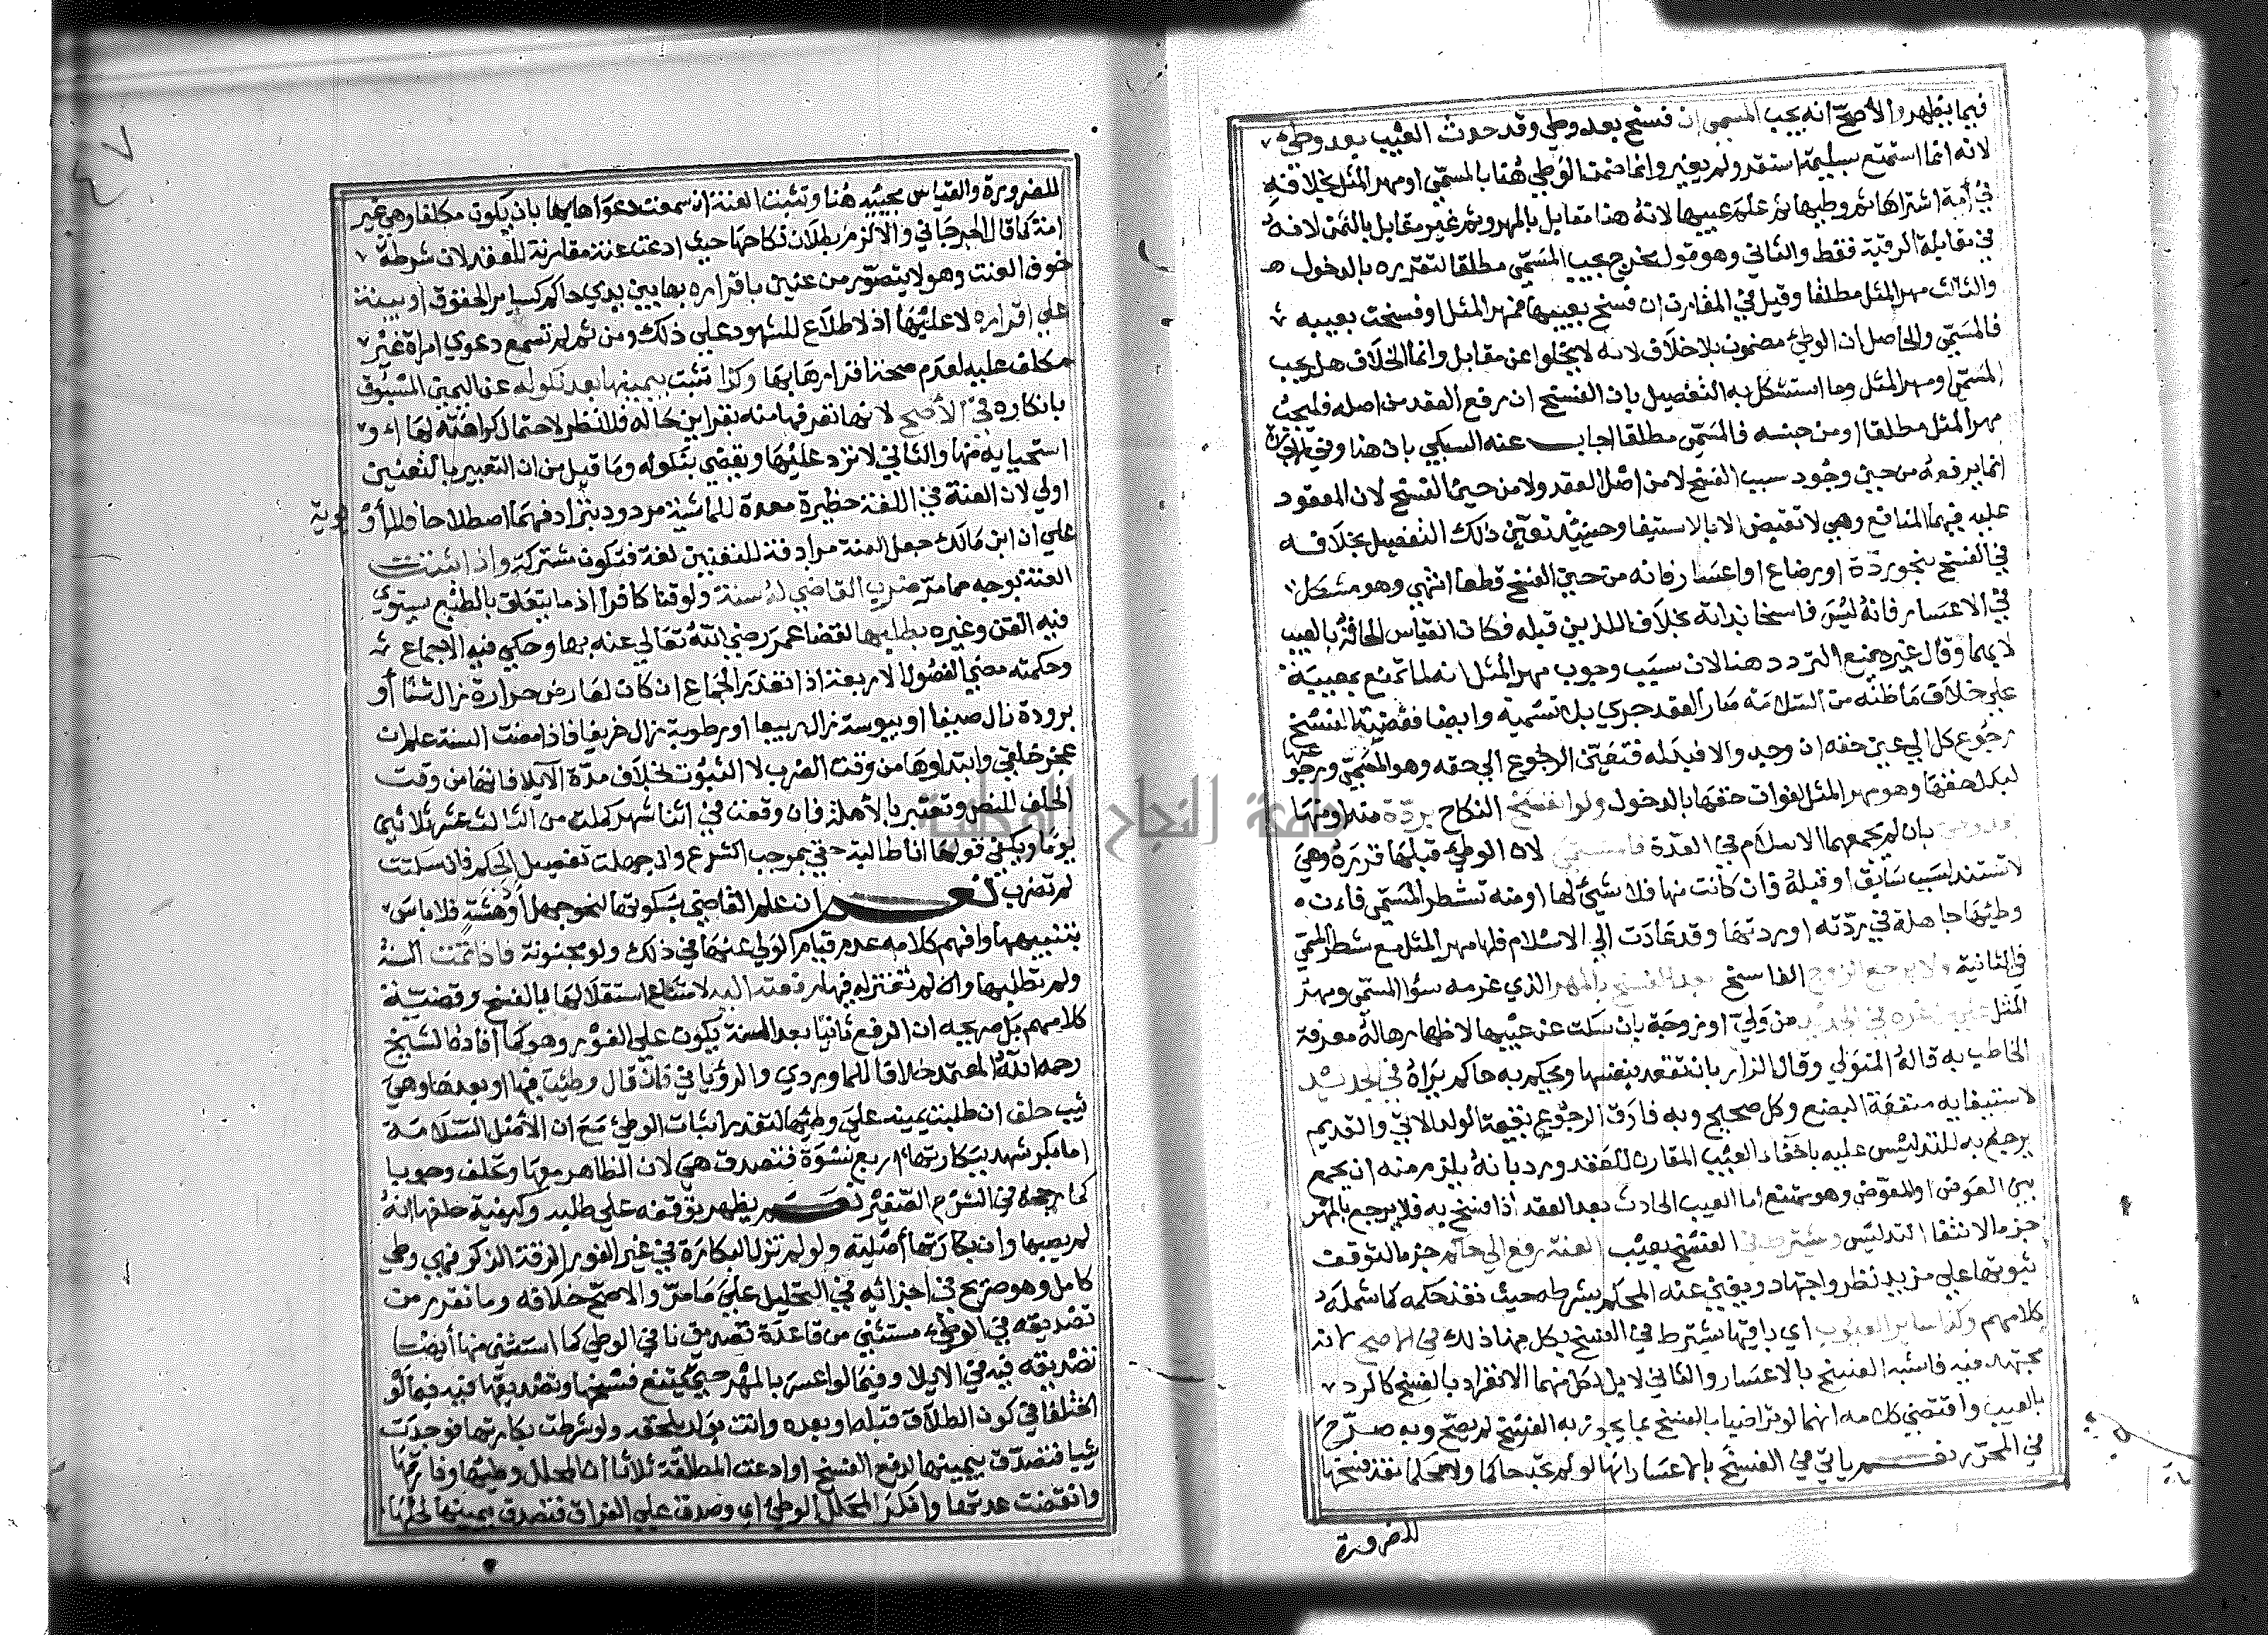 فيما يظهر والأصح انه يجب المسمى ان فسخ بعد وطئ وقد حدث العيب بعد وطئ
لانه انما استمتع بسليمة استقر ولم يغير وانما ضمن الوطي هنا بالمسمى او مهر المثل بخلافه
في أمة اشتراها ثم وطيها ثم علم عيبها لانه هنا مقابل بالمهر وثم غير مقابل بالثمن لانه
في مقابلة الرقبة فقط والثاني وهو قول مخرج يجب المسمى مطلقا لتقرره بالدخول
والثالث مهر المثل مطلقا وقيل في المقارن ان فسخ بعيبها فمهر المثل او فسخت بعيبه
فالمسمى والحاصل ان الوطئ مضمون بلا خلاف لانه لا يخلوا عن مقابل وانما الخلاف هل يجب
المسمى او مهر المثل وما استشكل به التفصيل بان الفسخ ان رفع العقد من اصله فليجب
مهر المثل مطلقا او من حينه فالمسمى مطلقا اجاب عنه السبكي بان هنا وفي
انما يرفعه من حين وجود سبب الفسخ لا من اصل العقد ولا من حين الفسخ لان المعقود
عليه فيهما المنافع وهي لا تقبض الا بالاستيفا وحينئذ تعين ذلك التفصيل بخلافه
في الفسخ بنحو ردة او رضاع او اعسار فانه من حين الفسخ قطعا انتهي وهو مشكل
في الاعسار فانه ليس فاسخا بذاته بخلاف اللذين قبله فكان القياس الحاقه بالعيب
لا بهما وقال غيره يمنع التردد هنا لان سبب وجوب مهر المثل انه لما تمتع بمعيبة
علي خلاف ما ظنه من السلامة صار العقد جري بلا تسمية وايضا فقضية الفسخ
رجوع كل الي عين حقه ان وجد والا فبدله فتعين الرجوع الي حقه وهو المسمى ورجوعها
لبدل حقها وهو مهر المثل لفوات حقها بالدخول ولو انفسخ النكاح بردة منه او منها
بعد وطئ بان لم يجمعهما الاسلام في العدة فالمسمى لان الوطئ قبلها قرره وهي
لا تستند لسبب سابق او قبله فان كانت منها فلا شيئ لها او منه تشطر المسمى فان
وطئها جاهلة في ردته او ردتها وقد عادت الي الاسلام فلها مهر المثل مع شطر المسمى
في الثانية ولا يرجع الزوج الفاسخ بعد الفسخ بالمهر الذي غرمه سوا المسمى ومهر
المثل على من غره في الجديد من ولي او زوجة بان سكت عن عيبها لاظهارها له معرفة
الخاطب به قاله المتولي وقال الزاز بان تعقد بنفسها ويحكم به حاكم يراه في الجديد
لاستيفايه منفعة البضع وكل صحيح وبه فارق الرجوع بقيمة الولد الاتي والقديم
يرجع به للتدليس عليه باخفاء العيب المقارن للعقد ورد بانه يلزم منه ان يجمع
بين العوض والمعوض وهو ممتنع اما العيب الحادث بعد العقد اذا فسخ به فلا يرجع بالمهر
جزما لانتفا التدليس ويشترط في الفسخ بعيب العنة رفع الي حاكم جزما لتوقف
ثبوتها علي مزيد نظر واجتهاد ويغني عنه المحكم بشرطه حيث نفذ حكمه كما شمله
كلامهم وكذا ساير العيوب اي باقيها يشترط في الفسخ بكل منها ذلك في الاصح لانه
مجتهد فيه فاشبه الفسخ بالاعسار والثاني لا بل لكل منهما الانفراد بالفسخ كالرد
بالعيب واقتضي كلامه انهما لو تراضيا بالفسخ بما يجوز به الفسخ لم يصح وبه صرح
في المحرر نعم ياتي في الفسخ بالاعسار انها لو لم تجد حاكما ولا محكما نفذ فسخها
للضرورة
للضرورة والقياس مجيئه هنا وتثبت العنة ان سمعت دعواها بها بان يكون مكلفا وهي غير
امة كما قال الجرجاني والا لزم بطلان نكاحها حيث ادعت عنة مقارنة للعقد لان شرطه
خوف العنت وهو لا يتصور من عنين باقراره بها بين يدي حاكم كساير الحقوق او ببينة
علي اقراره لا عليها اذ لا اطلاع للشهود علي ذلك ومن ثم لم تسمع دعوي امراة غير
مكلف عليه لعدم صحة اقرارهما بها وكذا تثبت بيمينها بعد نكوله عن اليمين المسبوق
بانكاره في الأصح لانها تعرفها منه بقراين حاله فلا نظر لاحتمال كراهته لها او
استحيايه منها والثاني لا ترد عليها ويقضي بنكوله وما قيل من ان التعبير بالتعنين
اولي لان العنة في اللغة حظيرة معدة للماشية مردود بترادفهما اصطلاحا فلا أولوية
علي ان ابن مالك جعل العنة مرادفة للتعنين لغة فتكون مشتركة واذا ثبتت
العنة بوجه مما مر ضرب القاضي له سنة ولو قنا كافرا اذ ما يتعلق بالطبع يستوي
فيه القن وغيره بطلبها لقضا عمر رضي الله تعالي عنه بها وحكي فيه الاجماع
وحكمته مضي الفصول الاربعة اذا تعذر الجماع ان كان لعارض حرارة زال شتا أو
برودة زال صيفا او يبوسة زال ربيعا او رطوبة زال خريفا فاذا مضت السنة علم ان
عجز خلقي وابتداوها من وقت الضرب لا الثبوت بخلاف مدة الايلا فانها من وقت
الحلف للنص وتعتبر بالأهلة فان وقعت في اثنا شهر كملت من الثالث عشر ثلاثين
يوما ويكفي قولها انا طالبة حقي بموجب الشرع وان جهلت تفصيل الحكم فان سكتت
لم تضرب نعم ان علم القاضي سكوتها لنحو جهل أو دهشة فلا باس
بتنبيهها وافهم كلامه عدم قيام الولي عنها في ذلك ولو مجنونة فاذا تمت السنة
ولم تطلبها وان لم تعتزله فيها رفعته اليه لامتناع استقلالها بالفسخ وقضية
كلامهم بل صريحه ان الرفع ثانيا بعد السنة يكون علي الفور وهو كما أفاده الشيخ
رحمه الله المعتمد خلافا للماوردي والرؤياني فان قال وطئت فيها او بعدها وهي
ثيب حلف ان طلبت يمينه علي وطئها لتعذر اثبات الوطئ مع ان الأصل السلامة
اما بكر شهد ببكارتها اربع نسوة فتصدق هي لان الظاهر معها وتحلف وجوبا
كما رجحه في الشرح الصغير نعم يظهر توقفه علي طلبه وكيفية حلفها انه
لم يصبها وان بكارتها أصلية ولو لم تزل البكارة في غير الغوراء لرقة الذكر فهي وطي
كامل وهو صريح في اجزائه في التحليل علي ما مر والاصح خلافه وما تقرر من
تصديقه في الوطئ مستثني من قاعدة تصديق نافي الوطي كما استثني منها أيضا
تصديقه فيه في الايلا وفيما لو اعسر بالمهر حتي يمتنع فسخها وتصديقها فيه فيما لو
اختلفا في كون الطلاق قبله او بعده واتت بولد يلحقه ولو شرطت بكارتها فوجدت
ثيبا فتصدق بيمينها لدفع الفسخ او ادعت المطلقة ثلاثا ان المحلل وطئها وفارقها
وانقضت عدتها وانكر المحلل الوطئ اي وصدق علي الفراق فتصدق بيمينها لحلها
جامعة النجاح الوطنية